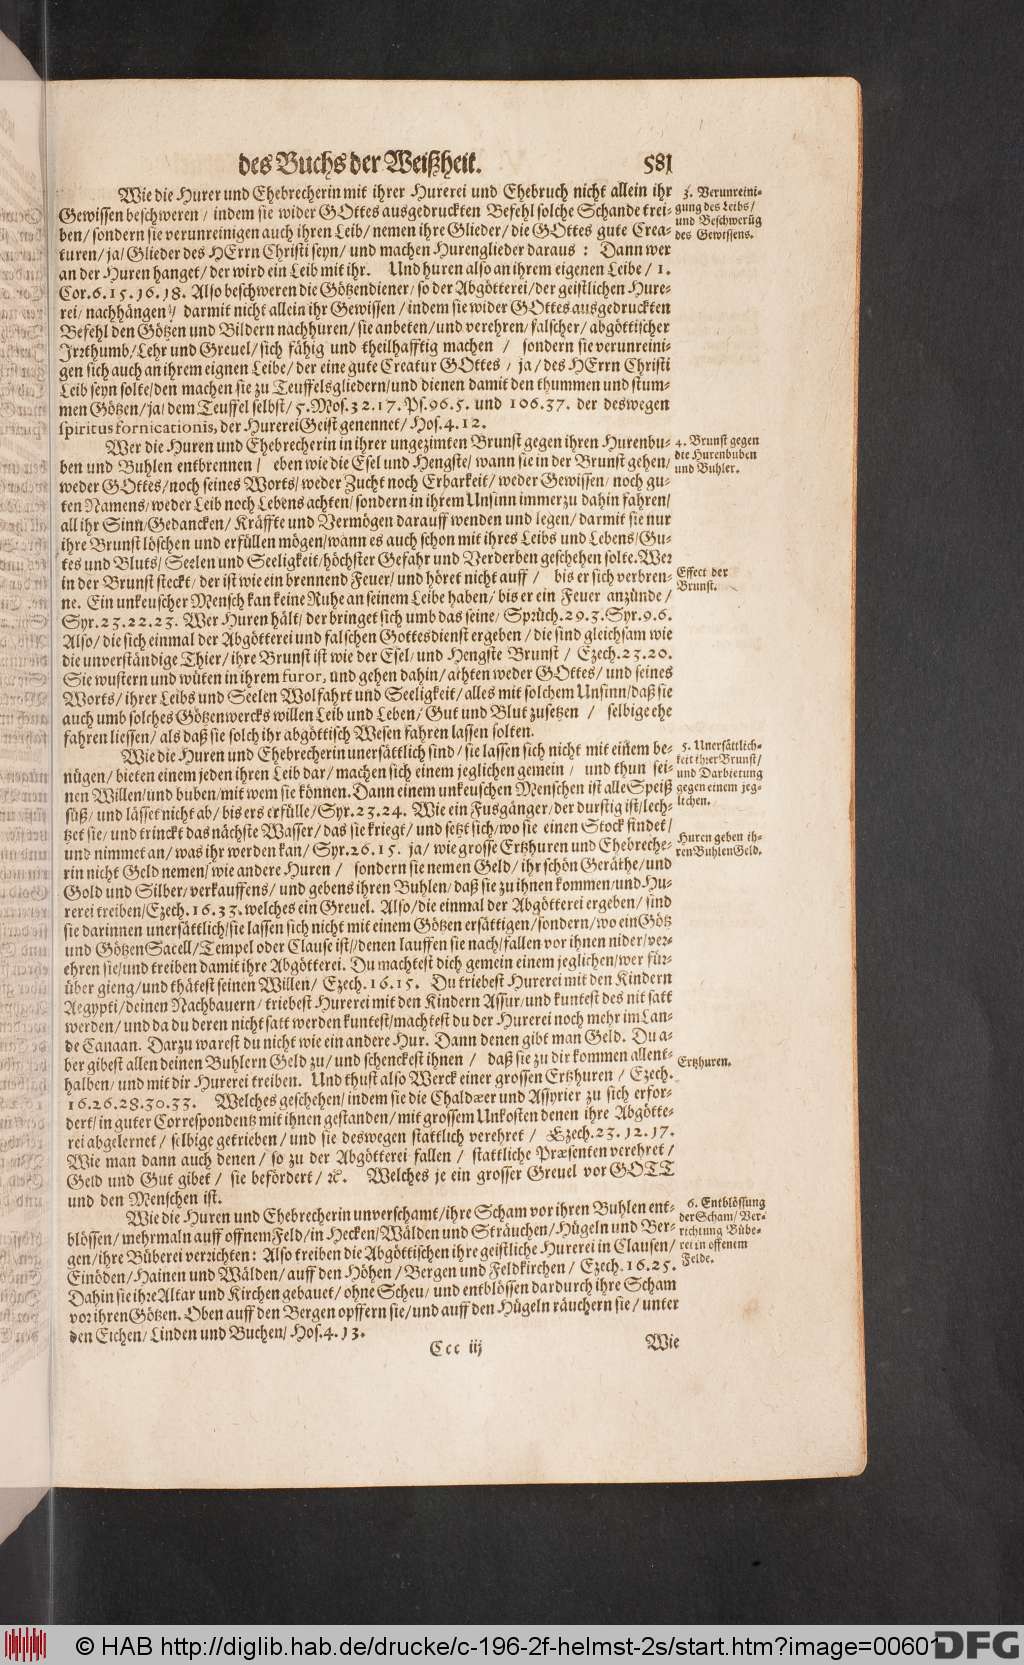 des Buchs der Weißheit. 581
Wie die Hurer und Ehebrecherin mit ihrer Hurerei und Ehebruch nicht allein ihr
Gewissen beschweren / indem sie wider GOttes ausgedruckten Befehl solche Schande trei-
ben / sondern sie verunreinigen auch ihren Leib / nemen ihre Glieder / die GOttes gute Crea-
turen / ja / Glieder des HErrn Christi seyn / und machen Hurenglieder daraus : Dann wer
an der Huren hanget / der wird ein Leib mit ihr. Und huren also an ihrem eigenen Leibe / 1.
Cor. 6. 15. 16. 18. Also beschweren die Götzendiener / so der Abgötterei / der geistlichen Hure-
rei / nachhängen / darmit nicht allein ihr Gewissen / indem sie wider GOttes ausgedruckten
Befehl den Götzen und Bildern nachhuren / sie anbeten / und verehren / falscher / abgöttischer
Irrthumb / Lehr und Greuel / sich fähig und theilhafftig machen / sondern sie verunreini-
gen sich auch an ihrem eignen Leibe / der eine gute Creatur GOttes / ja / des HErrn Christi
Leib seyn solte / den machen sie zu Teuffelsgliedern / und dienen damit den thummen und stum-
men Götzen / ja / dem Teuffel selbst / 5. Mos. 32. 17. Ps. 96. 5. und 106. 37. der deswegen
spiritus fornicationis, der Hurerei Geist genennet / Hos. 4. 12.
3. Verunreini-
gung des Leibs /
und Beschwerũg
des Gewissens.
Wer die Huren und Ehebrecherin in ihrer ungezimten Brunst gegen ihren Hurenbu-
ben und Buhlen entbrennen / eben wie die Esel und Hengste / wann sie in der Brunst gehen /
weder GOttes / noch seines Worts / weder Zucht noch Erbarkeit / weder Gewissen / noch gu-
ten Namens / weder Leib noch Lebens achten / sondern in ihrem Unsinn immerzu dahin fahren /
all ihr Sinn / Gedancken / Kräffte und Vermögen darauff wenden und legen / darmit sie nur
ihre Brunst löschen und erfüllen mögen / wann es auch schon mit ihres Leibs und Lebens / Gu-
tes und Bluts / Seelen und Seeligkeit / höchster Gefahr und Verderben geschehen solte. Wer
in der Brunst steckt / der ist wie ein brennend Feuer / und höret nicht auff / bis er sich verbren-
ne. Ein unkeuscher Mensch kan keine Ruhe an seinem Leibe haben / bis er ein Feuer anzünde /
Syr. 23. 22. 23. Wer Huren hält / der bringet sich umb das seine / Sprüch. 29. 3. Syr. 9. 6.
Also / die sich einmal der Abgötterei und falschen Gottesdienst ergeben / die sind gleichsam wie
die unverständige Thier / ihre Brunst ist wie der Esel / und Hengste Brunst / Ezech. 23. 20.
Sie wustern und wüten in ihrem furor, und gehen dahin / achten weder GOttes / und seines
Worts / ihrer Leibs und Seelen Wolfahrt und Seeligkeit / alles mit solchem Unsinn / daß sie
auch umb solches Götzenwercks willen Leib und Leben / Gut und Blut zusetzen / selbige ehe
fahren liessen / als daß sie solch ihr abgöttisch Wesen fahren lassen solten.
4. Brunst gegen
die Hurenbuben
und Buhler.
Effect der
Brunst.
Wie die Huren und Ehebrecherin unersättlich sind / sie lassen sich nicht mit einem be-
nügen / bieten einem jeden ihren Leib dar / machen sich einem jeglichen gemein / und thun sei-
nen Willen / und buben / mit wem sie können. Dann einem unkeuschen Menschen ist alle Speiß
süß / und lässet nicht ab / bis ers erfülle / Syr. 23. 24. Wie ein Fusgänger / der durstig ist / lech-
tzet sie / und trinckt das nächste Wasser / das sie kriegt / und setzt sich / wo sie einen Stock findet /
und nimmet an / was ihr werden kan / Syr. 26. 15. ja / wie grosse Ertzhuren und Ehebreche-
rin nicht Geld nemen / wie andere Huren / sondern sie nemen Geld / ihr schön Geräthe / und
Gold und Silber / verkauffens / und gebens ihren Buhlen / daß sie zu ihnen kommen / und Hu-
rerei treiben / Ezech. 16. 33. welches ein Greuel. Also / die einmal der Abgötterei ergeben / sind
sie darinnen unersättlich / sie lassen sich nicht mit einem Götzen ersättigen / sondern / wo ein Götz
und Götzen Sacell / Tempel oder Clause ist / denen lauffen sie nach / fallen vor ihnen nider / ver-
ehren sie / und treiben damit ihre Abgötterei. Du machtest dich gemein einem jeglichen / wer für-
über gieng / und thätest seinen Willen / Ezech. 16. 15. Du triebest Hurerei mit den Kindern
Aegypti / deinen Nachbauern / triebest Hurerei mit den Kindern Assur / und kuntest des nit satt
werden / und da du deren nicht satt werden kuntest / machtest du der Hurerei noch mehr im Lan-
de Canaan. Darzu warest du nicht wie ein andere Hur. Dann denen gibt man Geld. Du a-
ber gibest allen deinen Buhlern Geld zu / und schenckest ihnen / daß sie zu dir kommen allent-
halben / und mit dir Hurerei treiben. Und thust also Werck einer grossen Ertzhuren / Ezech.
16. 26. 28. 30. 33. Welches geschehen / indem sie die Chaldæer und Assyrier zu sich erfor-
dert / in guter Correspondentz mit ihnen gestanden / mit grossem Unkosten denen ihre Abgötte-
rei abgelernet / selbige getrieben / und sie deswegen stattlich verehret / Ezech. 23. 12. 17.
Wie man dann auch denen / so zu der Abgötterei fallen / stattliche Præsenten verehret /
Geld und Gut gibet / sie befördert / ꝛc. Welches je ein grosser Greuel vor GOTT
und den Menschen ist.
5. Unersättlich-
keit ihrer Brunst /
und Darbietung
gegen einem jeg-
lichen.
Huren geben ih-
ren Buhlen Geld.
Ertzhuren.
Wie die Huren und Ehebrecherin unverschamt / ihre Scham vor ihren Buhlen ent-
blössen / mehrmaln auff offnem Feld / in Hecken / Wälden und Sträuchen / Hügeln und Ber-
gen / ihre Büberei verrichten : Also treiben die Abgöttischen ihre geistliche Hurerei in Clausen /
Einöden / Hainen und Wälden / auff den Höhen / Bergen und Feldkirchen / Ezech. 16. 25.
Dahin sie ihre Altar und Kirchen gebauet / ohne Scheu / und entblössen dardurch ihre Scham
vor ihren Götzen. Oben auff den Bergen opffern sie / und auff den Hügeln räuchern sie / unter
den Eichen / Linden und Buchen / Hos. 4. 13.
6. Entblössung
der Scham / Ver-
richtung Bübe-
rei in offenem
Felde.
Ccc iij Wie
© HAB http://diglib.hab.de/drucke/c-196-2f-helmst-2s/start.htm?image=00601
DFG